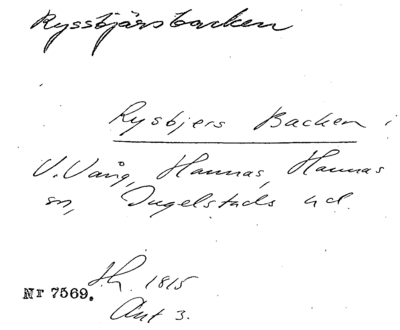 Ryssbjärsbacken
Rysbjers Backen
V. Vång, Hannas, Hannas
sn, Ingelstads hd.
Sh. 1815
Nr 7569.
Akt 3.